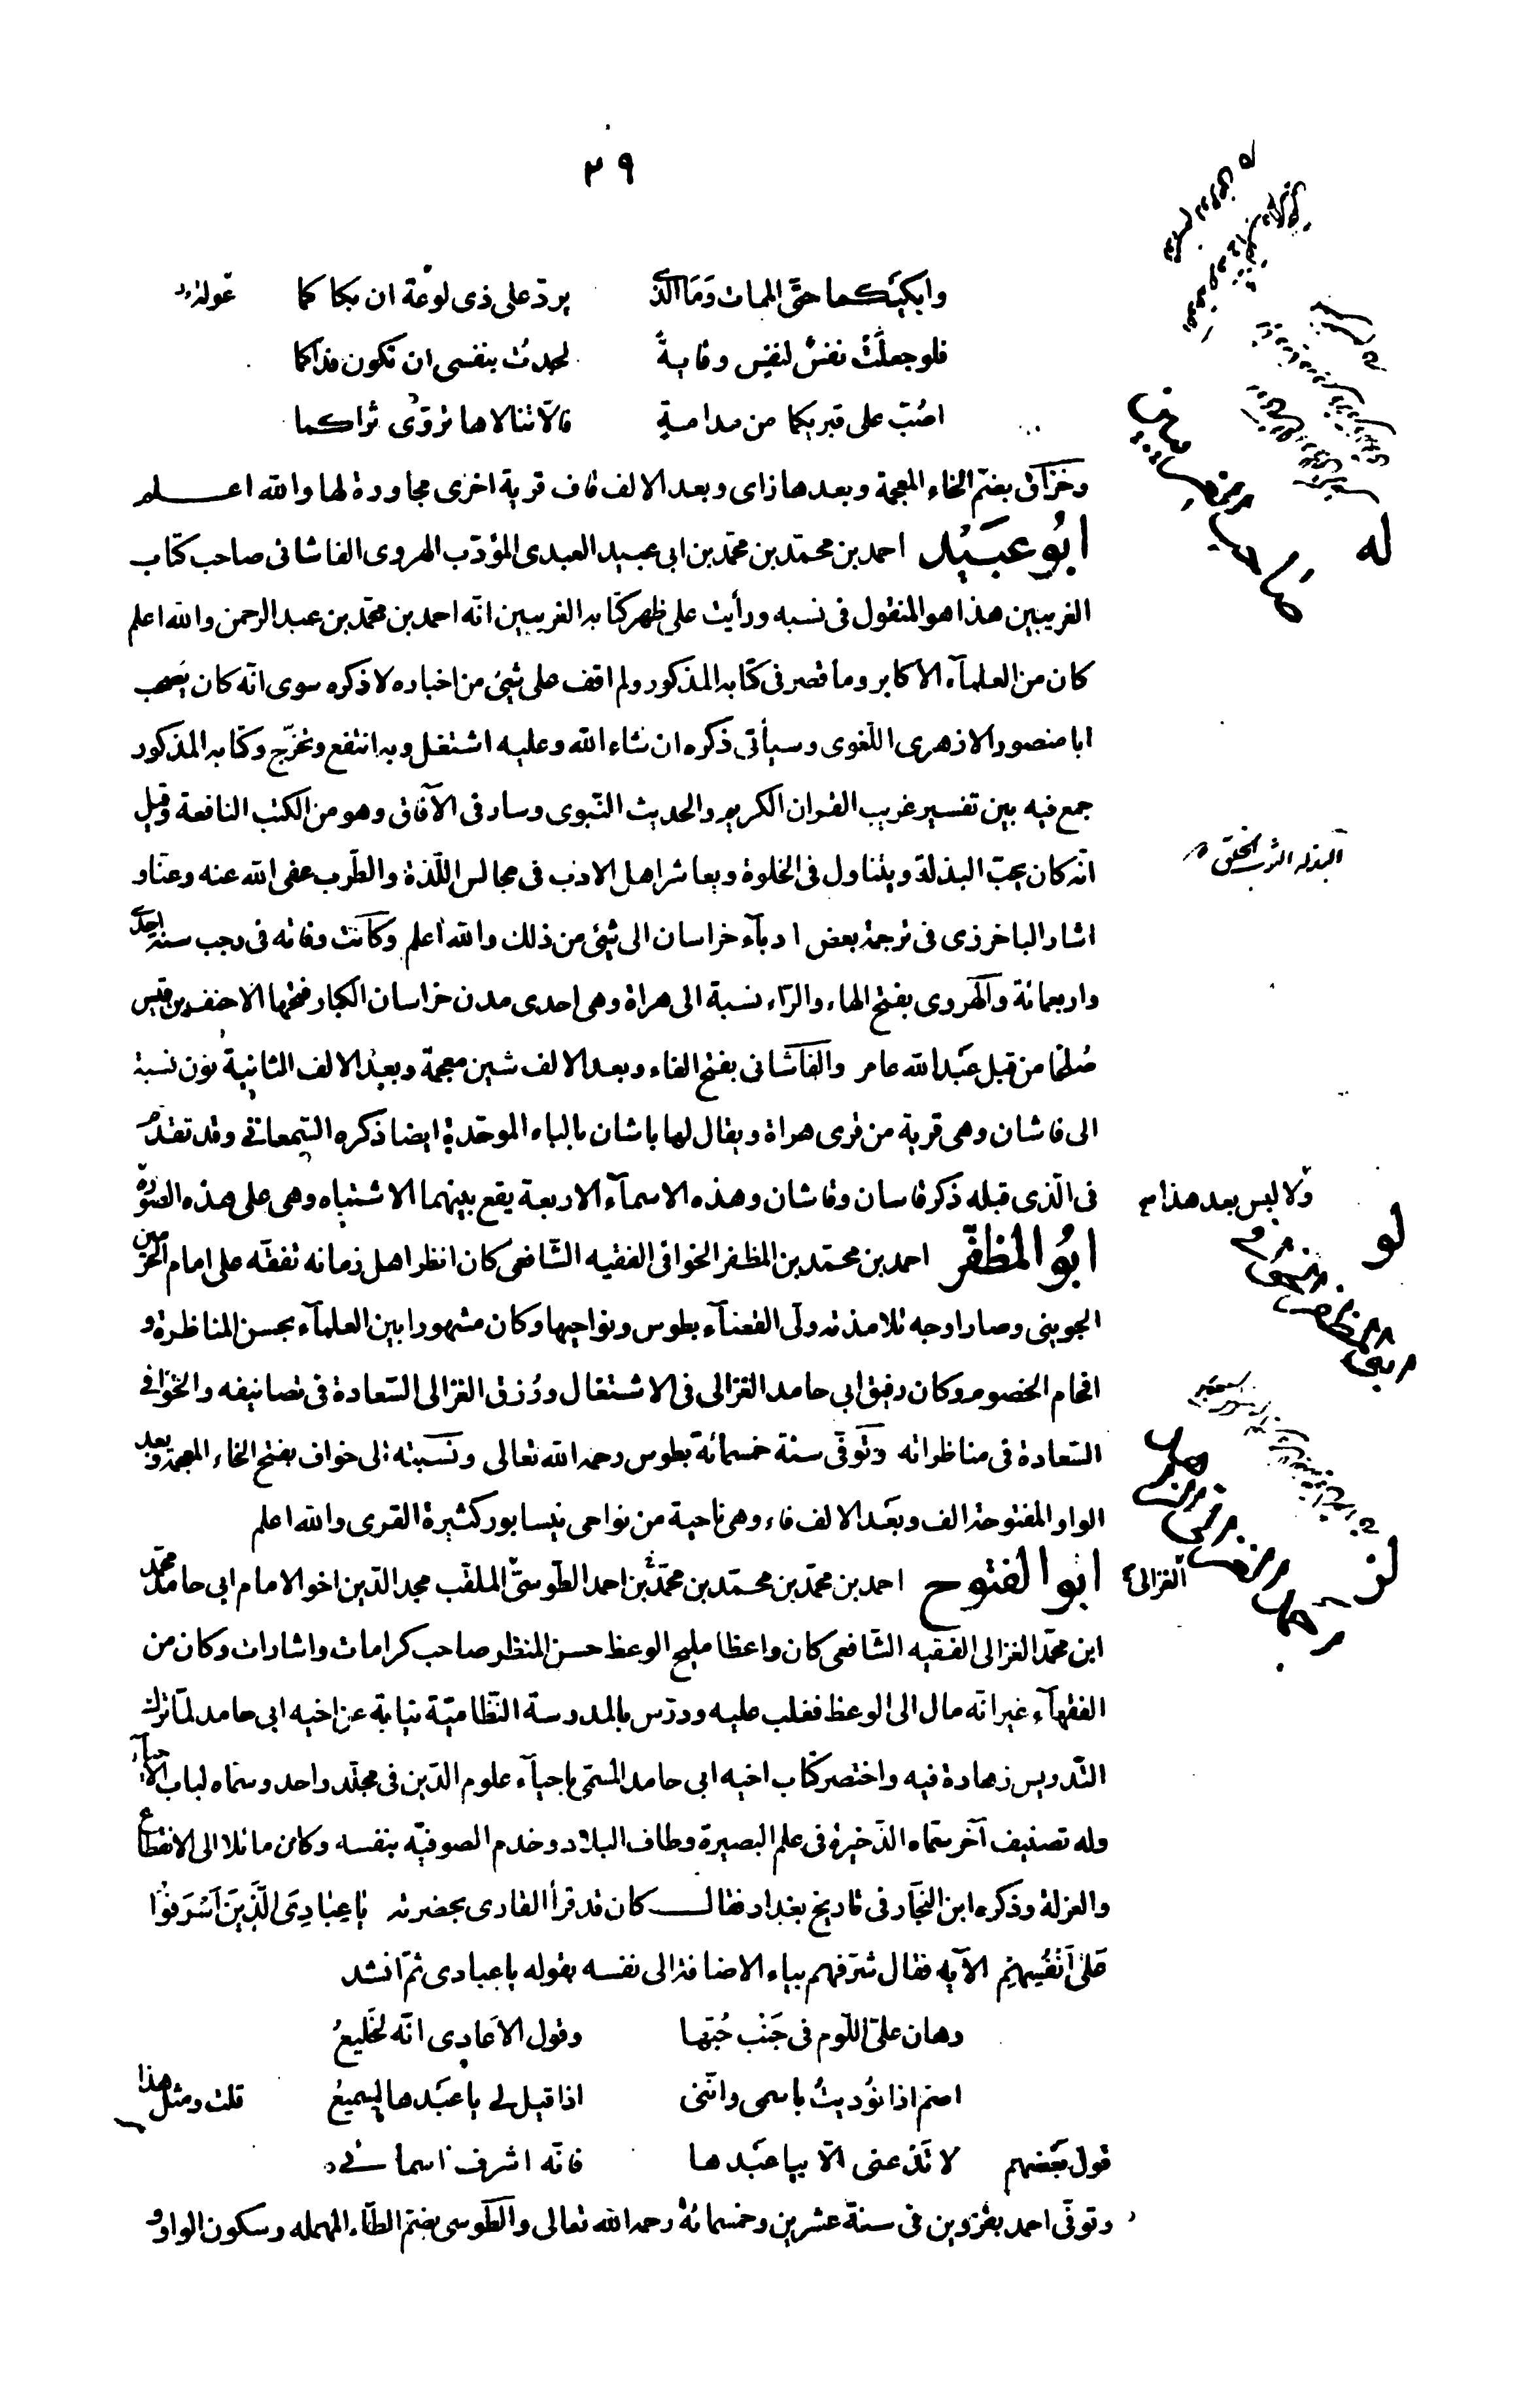 ٢٩
وابكيكما حتّى الممات وَمَا الّذى يردّ على ذى لوعة ان بكاكما عولة
فلو جعلَتْ نفسٌ لنفسٍ وقايةً لجدتُ بنفسى ان تكون فداكما
اصُبّ على قبريكما من مدامةٍ فالّا تنالاها تروّى ثراكما
وخزاق بضمّ الخاء المعجمة وبعدها زاى وبعد الالف قاف قرية اخرى مجاورة لها والله اعلم
ابُو عبَيْد احمد بن محمّد بن محمّد بن ابى عبيد العبدى المؤدّب الهروى الفاشانى صاحب كتاب
الغريبين هذا هو المنقول فى نسبه ورأيت على ظهر كتابه الغريبين انّه احمد بن محمّد بن عبد الرحمن والله اعلم
كان من العلمآء الاكابر وما قصر فى كتابه المذكور ولم اقف على شئ من اخباره لاذكره سوى انّه كان يصحب
ابا منصور الازهرى اللّغوى وسيأتى ذكره ان شاء الله وعليه اشتغل وبه انتفع وتخرّج وكتابه المذكور
جمع فيه بين تفسير غريب القران الكريم والحديث النّبوى وسار فى الآفاق وهو من الكتب النافعة وقيل
انّه كان يحبّ البذلة ويتناول فى الخلوة ويعاشر اهل الادب فى مجالس اللّذة والطّرب عفى الله عنه وعنّا و
البذله الثوب الخلق
اشار الباخرزى فى ترجمة بعض ادبآء خراسان الى شئ من ذلك والله اعلم وكانت وفاته فى رجب سنة احدى
واربعمائة والهروى بفتح الهاء والرّاء نسبة الى هراة وهى احدى مدن خراسان الكبار فتحها الاحنف بن قيس
صُلحًا من قبل عبد الله عامر والفاشانى بفتح الفاء وبعد الالف شين معجمة وبعد الالف الثانية نون نسبة
الى فاشان وهى قرية من قرى هراة ويقال لها باشان بالباء الموحّدة ايضا ذكره السّمعانى وقد تقدّم
فى الّذى قبله ذكر قاسان وقاشان وهذه الاسمآء الاربعة يقع بينهما الاشتباه وهى على هذه الصّورة
ولا لبس بعد هذا
ابُو المظفّر احمد بن محمّد بن المظفر الخوافى الفقيه الشّافعى كان انظر اهل زمانه تفقّه على امام الحرمين
الجوينى وصار اوجه تلامذته ولّى القضآء بطوس ونواحيها وكان مشهورا بين العلمآء بحسن المناظرة و
افحام الخصوم وكان رفيق ابى حامد الغزالى فى الاشتغال ورُزق الغزالى السّعادة فى تصانيفه والخوافى
السّعادة فى مناظراته وتوفّى سنة خمسمائة بطوس رحمه الله تعالى ونسبته الى خواف بفتح الخاء المعجمة وبعد
الواو المفتوحة الف وبعد الالف فاء وهى ناحية من نواحى نيسابور كثيرة القرى والله اعلم
ابو الفتوح احمد بن محمّد بن محمّد بن محمّد بن احمد الطّوسىّ الملقّب مجد الدّين اخو الامام ابى حامد محمّد
الغزالى
ابن محمّد الغزالى الفقيه الشّافعى كان واعظا مليح الوعظ حسن المنظر صاحب كرامات واشارات وكان من
الفقهآء غير انّه مال الى الوعظ فغلب عليه ودرّس بالمدرسة النّظاميّة نيابة عن اخيه ابى حامد لمّا ترك
التّدريس زهادة فيه واختصر كتاب اخيه ابى حامد المسمّى باحيآء علوم الدّين فى مجلّد واحد وسمّاه لباب الاحيآء
وله تصنيف آخر سمّاه الذّخيرة فى علم البصيرة وطاف البلاد وخدم الصوفيّه بنفسه وكان مائلا الى الانقطاع
والعزلة وذكره ابن النجّار فى تاريخ بغداد فقال كان قد قرأ القارى بحضرته يا عِبَادِىَ الَّذِينَ اَسْرَفُوا
عَلٰى اَنْفُسِهِمْ الآيه فقال شرّفهم بياء الاضافة الى نفسه بقوله يا عبادى ثمّ انشد
وهان علىّ اللّوم فى جَنْب حُبّها وقول الاعادِى انّه لخليعُ
اصمّ اذا نوُديتُ باسمى وانّنى اذا قيل لى يا عبدها لسميعُ قلت ومثل هذا
قول بعضهم لا تَدْعنى الّا بيا عبدها فانّه اشرف اسمائى
وتوفّى احمد بقزوين فى سنة عشرين وخمسمائة رحمه الله تعالى والطّوسى بضمّ الطّاء المهمله وسكون الواو و